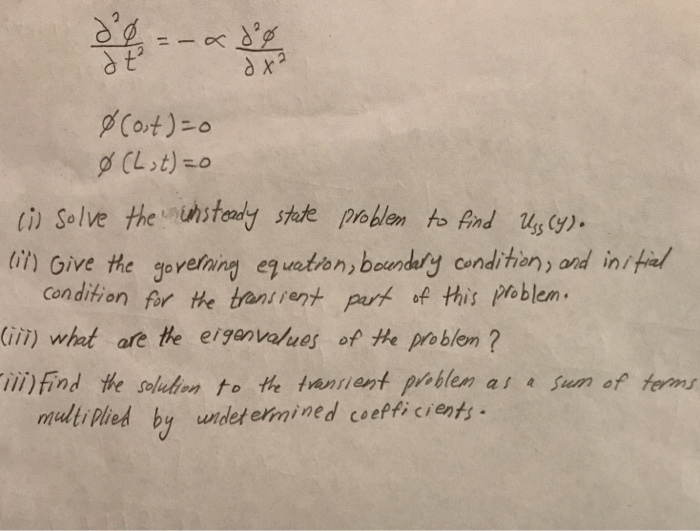 ∂²ø/∂t² = -α ∂²ø/∂x²
ø(0,t)=0
ø(L,t)=0
(i) Solve the unsteady state problem to find Uss(y).
(ii) Give the governing equation, boundary condition, and initial
condition for the transient part of this problem.
(iii) what are the eigenvalues of the problem?
(iii) Find the solution to the transient problem as a sum of terms
multiplied by undetermined coefficients.